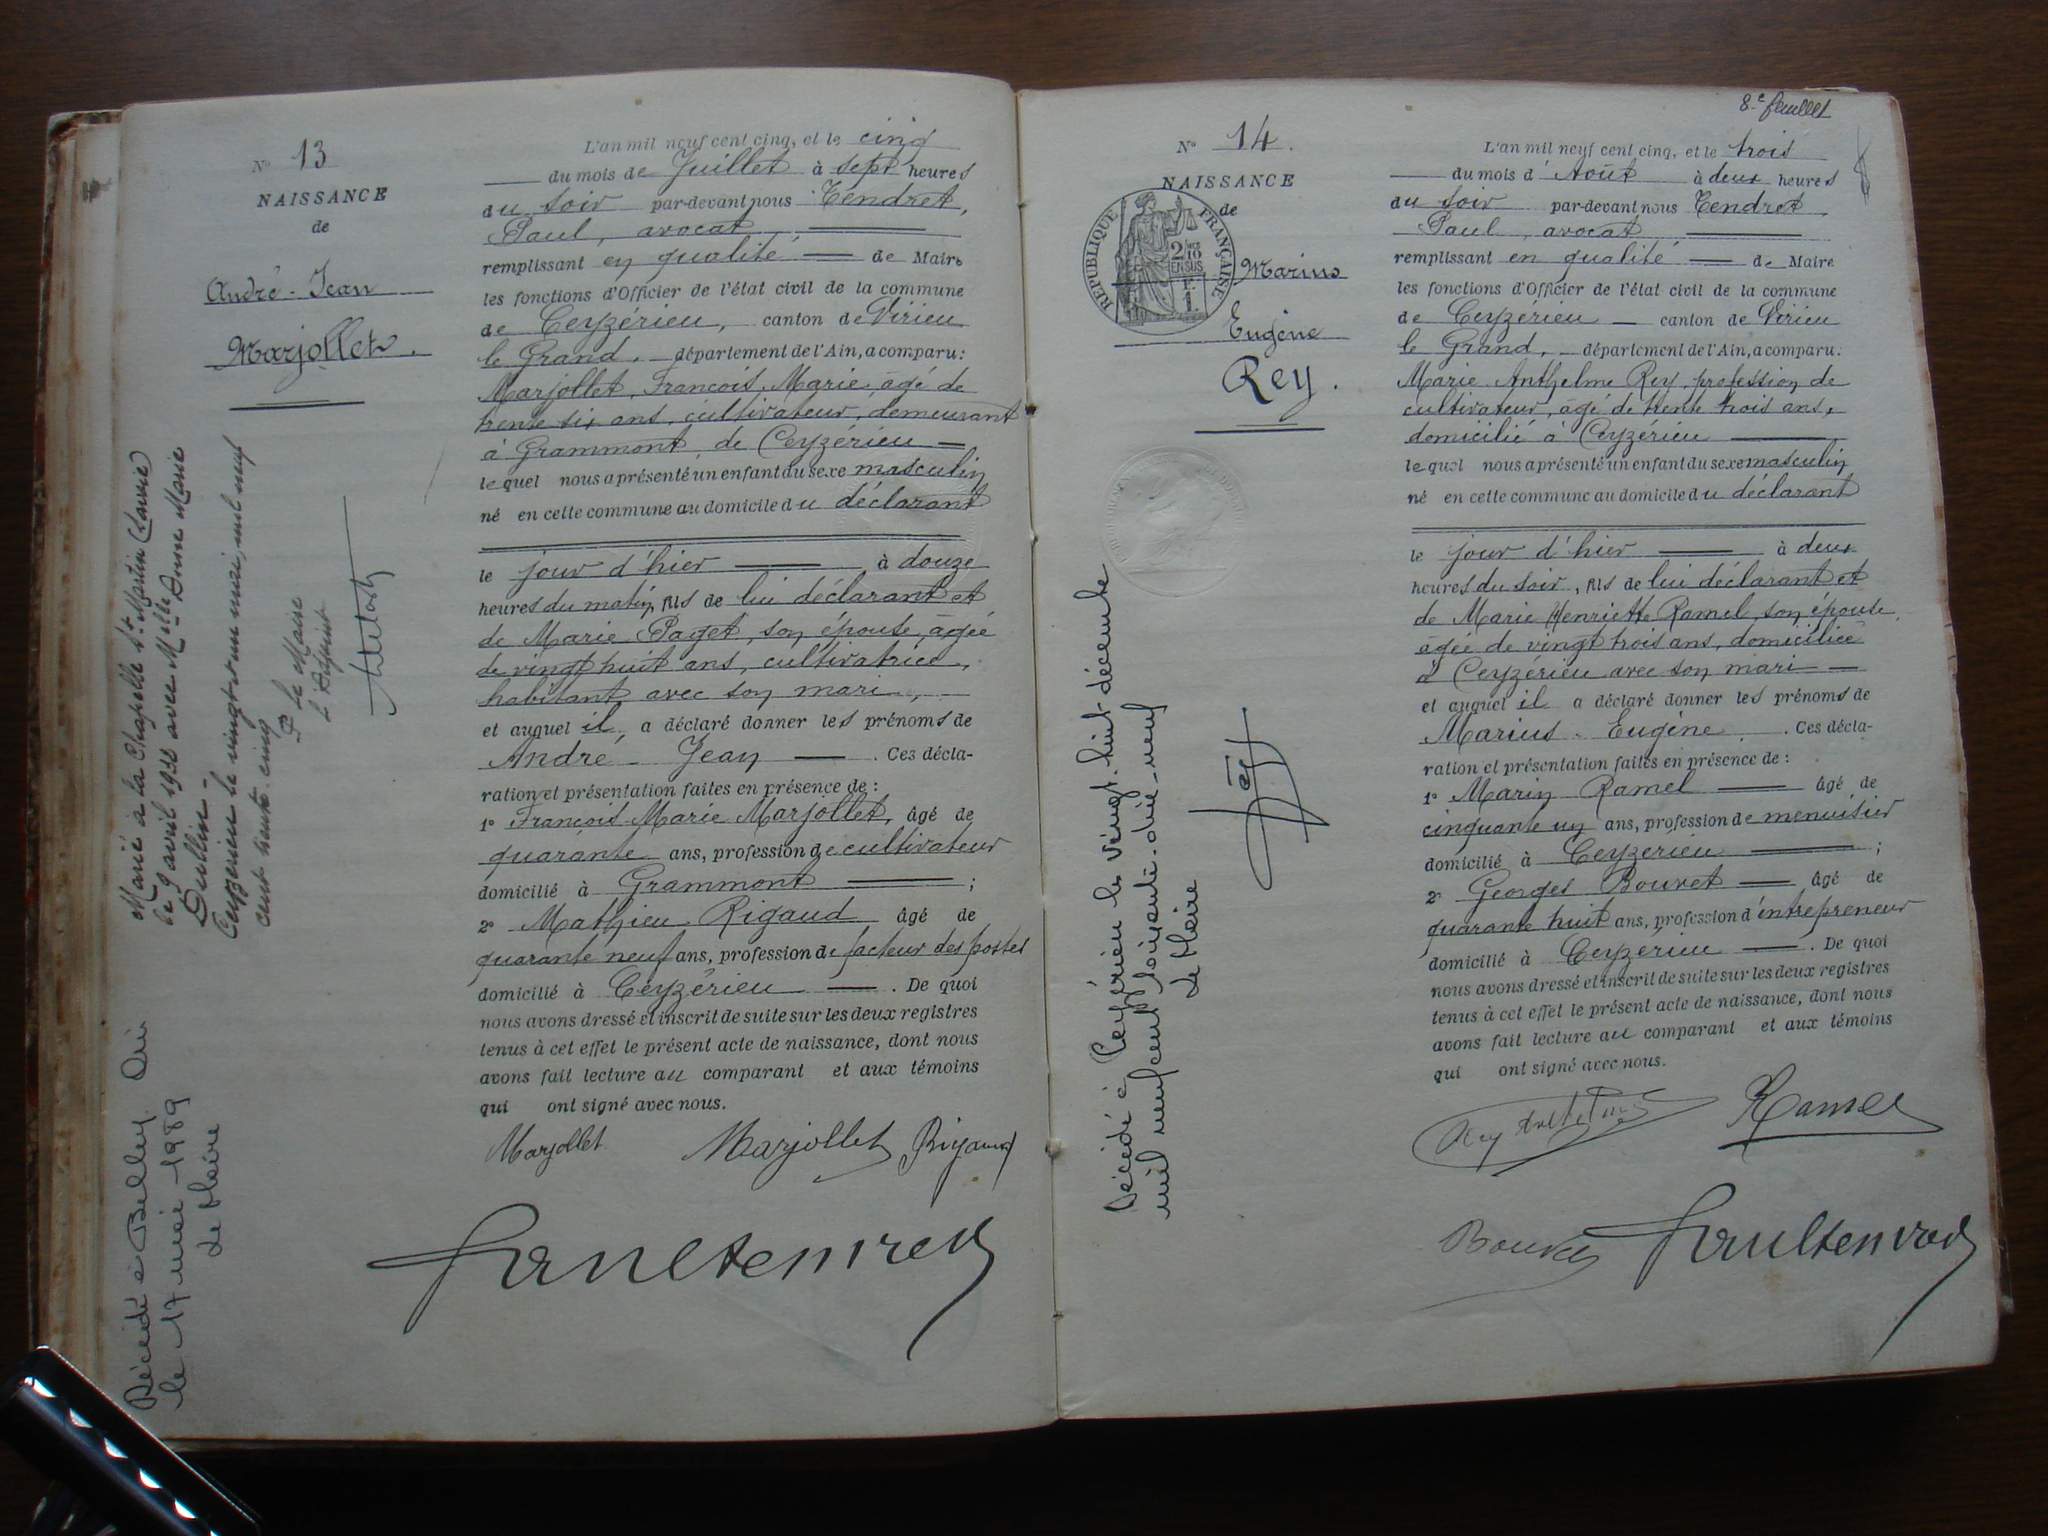 N° 13
NAISSANCE
de
André-Jean
Marjollet.
L'an mil neuf cent cinq, et le cinq
du mois de Juillet à sept heures
du soir par-devant nous Tendret,
Paul, avocat,
remplissant en qualité de Maire
les fonctions d'Officier de l'état civil de la commune
de Ceyzérieu, canton de Virieu
le Grand, département de l'Ain, a comparu:
Marjollet, François, Marie, âgé de
trente six ans, cultivateur, demeurant
à Grammont, de Ceyzérieu
lequel nous a présenté un enfant du sexe masculin
né en cette commune au domicile du déclarant
le jour d'hier à douze
heures du matin, fils de lui déclarant et
de Marie Paget, son épouse, âgée
de vingt huit ans, cultivatrice,
habitant avec son mari,
et auquel il a déclaré donner les prénoms de
André Jean. Ces décla-
ration et présentation faites en présence de :
1° François Marie Marjollet, âgé de
quarante ans, profession de cultivateur
domicilié à Grammont ;
2° Mathieu Rigaud âgé de
quarante neuf ans, profession de facteur des postes
domicilié à Ceyzérieu. De quoi
nous avons dressé et inscrit de suite sur les deux registres
tenus à cet effet le présent acte de naissance, dont nous
avons fait lecture au comparant et aux témoins
qui ont signé avec nous.
Marjollet Marjollet Rigaud
Marié à la Chapelle St. Martin (Savoie)
le 9 avril 1932 avec Melle Anne Marie
Dullin -
Ceyzérieu le vingt-un mai, mil neuf
cent trente-cinq
Pr le Maire
l'adjoint
Décédé à Belley Ain
le 17 mai 1989
Le Maire
8e feuillet
N° 14.
NAISSANCE
de
RÉPUBLIQUE FRANÇAISE
2/10 EN SUS
1
Marius
Eugène
Rey.
L'an mil neuf cent cinq, et le trois
du mois d'Août à deux heures
du soir par-devant nous Tendret
Paul, avocat
remplissant en qualité de Maire
les fonctions d'Officier de l'état civil de la commune
de Ceyzérieu canton de Virieu
le Grand, département de l'Ain, a comparu:
Marie Anthelme Rey, profession de
cultivateur, âgé de trente trois ans,
domicilié à Ceyzérieu
lequel nous a présenté un enfant du sexe masculin
né en cette commune au domicile du déclarant
le jour d'hier à deux
heures du soir, fils de lui déclarant et
de Marie Henriette Ramel, son épouse,
âgée de vingt trois ans, domiciliée
à Ceyzérieu avec son mari
et auquel il a déclaré donner les prénoms de
Marius Eugène. Ces décla-
ration et présentation faites en présence de :
1° Marin Ramel âgé de
cinquante un ans, profession de menuisier
domicilié à Ceyzerieu ;
2° Georges Bouvet âgé de
quarante huit ans, profession d'entrepreneur
domicilié à Ceyzérieu. De quoi
nous avons dressé et inscrit de suite sur les deux registres
tenus à cet effet le présent acte de naissance, dont nous
avons fait lecture au comparant et aux témoins
qui ont signé avec nous.
Rey Anthelme Ramel
Bouvet
Décédé à Ceyzérieu le vingt-huit décembre
mil neuf cent soixante-dix-neuf
Le Maire